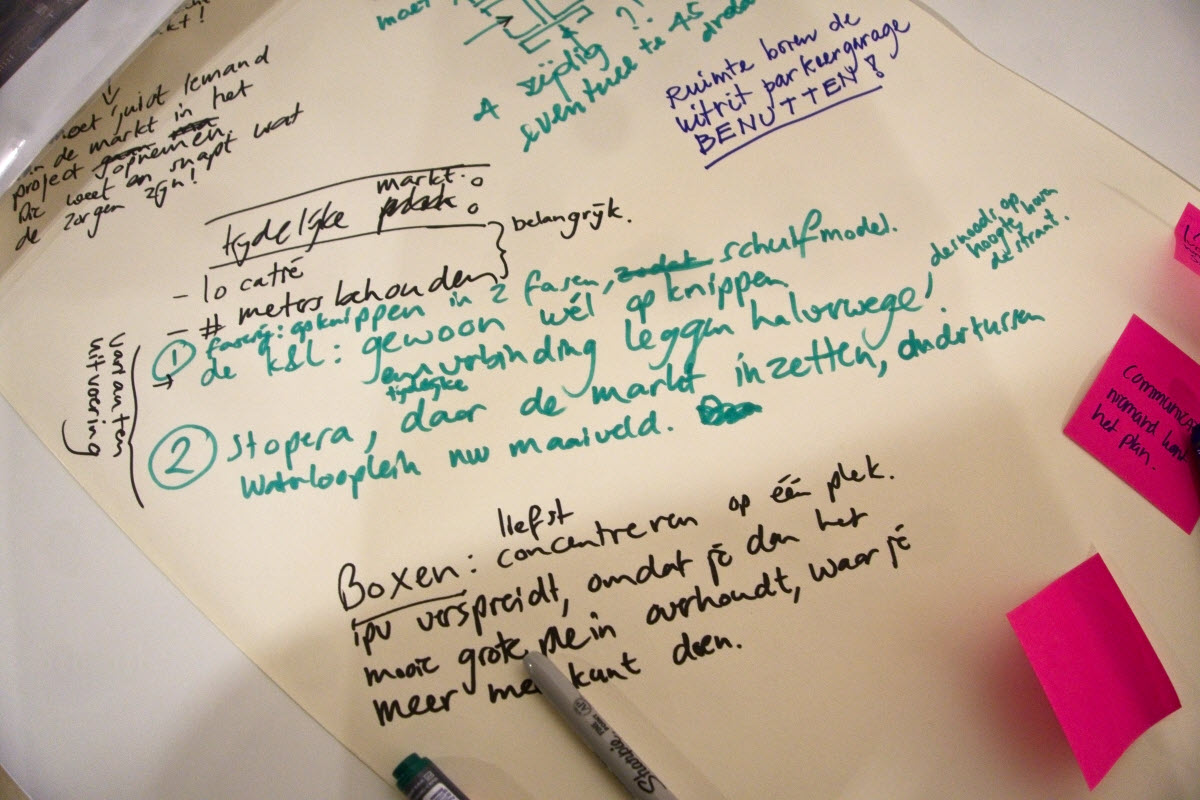 moet
4 zijdig ??
eventueel te 45
Ruimte boven de
uitrit parkeergarage
BENUTTEN!
moet juist iemand
in de markt in het
project opnemen.
Die weet en snapt wat
de zorgen zijn!
tijdelijke markt:
- locatie
- # meters behouden
belangrijk.
varianten
uitvoering
1 fasering: opknippen in 2 fasen, schuifmodel.
de K&L: gewoon wél opknippen
een verbinding leggen halverwege,
tijdelijke
desnoods op
hoogte boven
de straat.
2 Stopera, daar de markt inzetten, ondertussen
Waterlooplein nw maaiveld.
liefst
Boxen: concentreren op één plek.
ipv verspreidt, omdat je dan het
mooie grote plein overhoudt, waar je
meer mee kunt doen.
niemand kent
het plan.
Sharpie